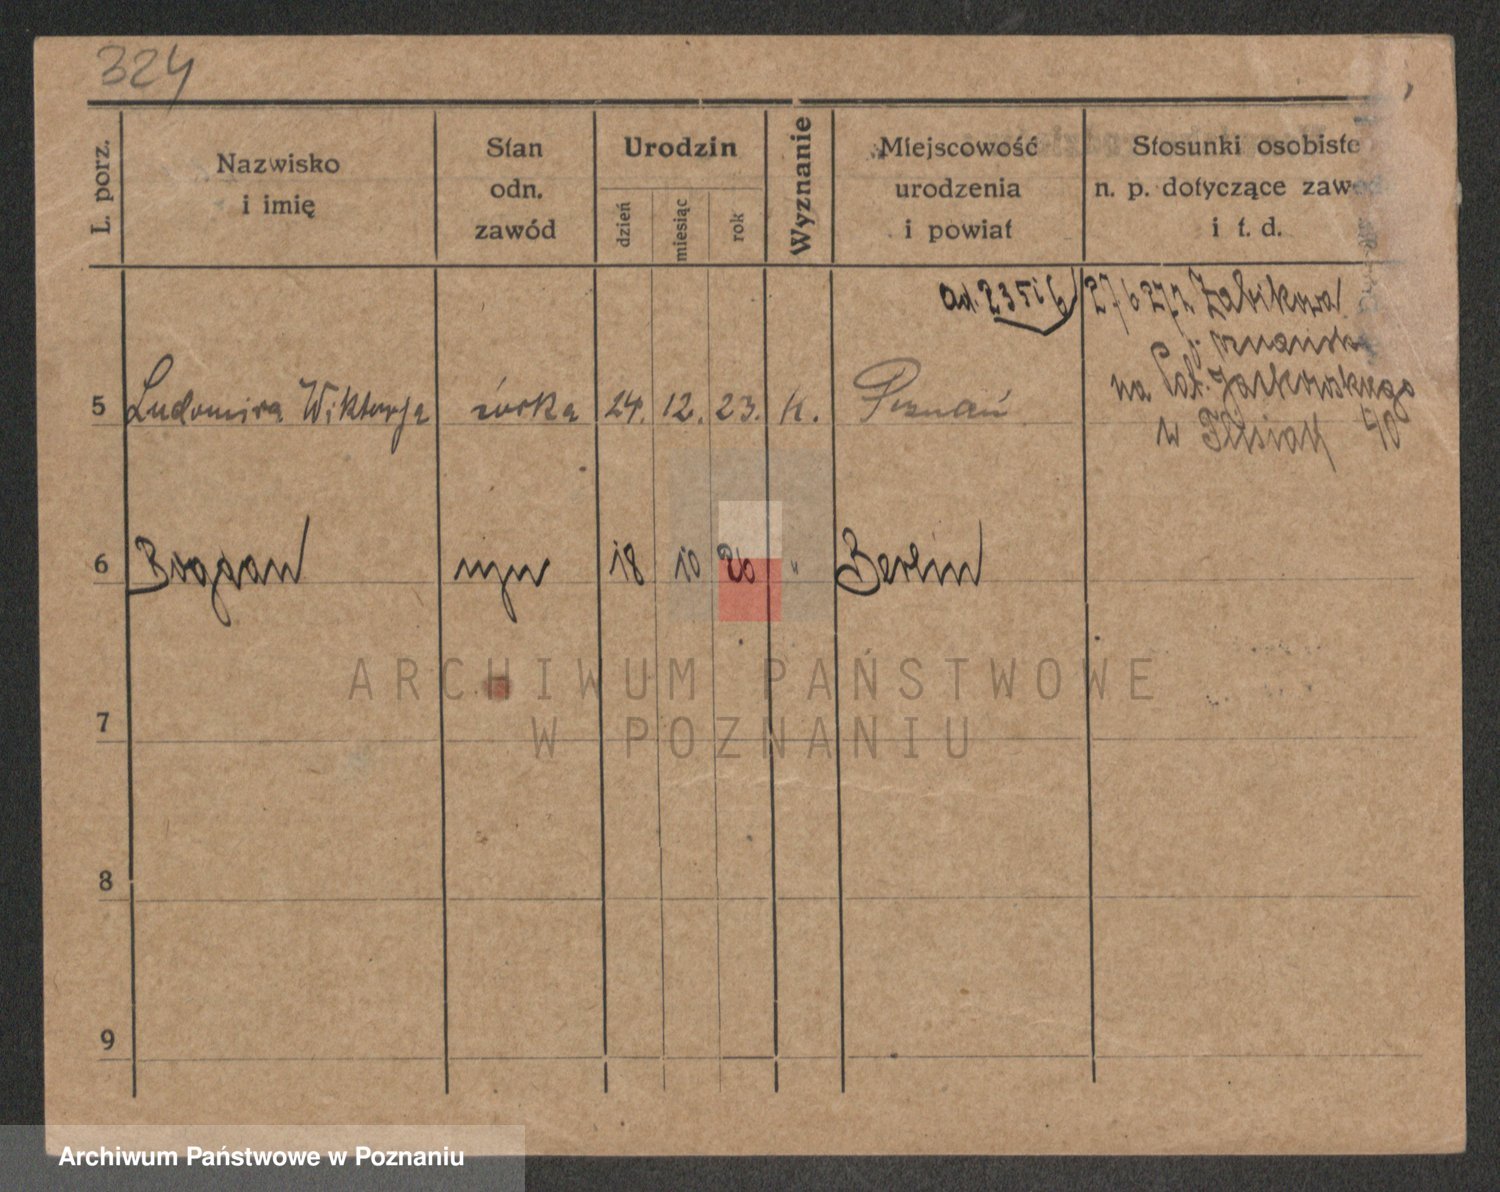 324
L. porz.
Nazwisko
i imię
Stan
odn.
zawód
Urodzin
dzień
miesiąc
rok
Wyznanie
Miejscowość
urodzenia
i powiat
Stosunki osobiste
n. p. dotyczące zawo
i t. d.
5 Ludomira Wiktorja córka 24. 12. 23. K. Poznań
6 Bogdan syn 18 10 26 " Berlin
7
8
9
ARCHIWUM PAŃSTWOWE
W POZNANIU
Archiwum Państwowe w Poznaniu